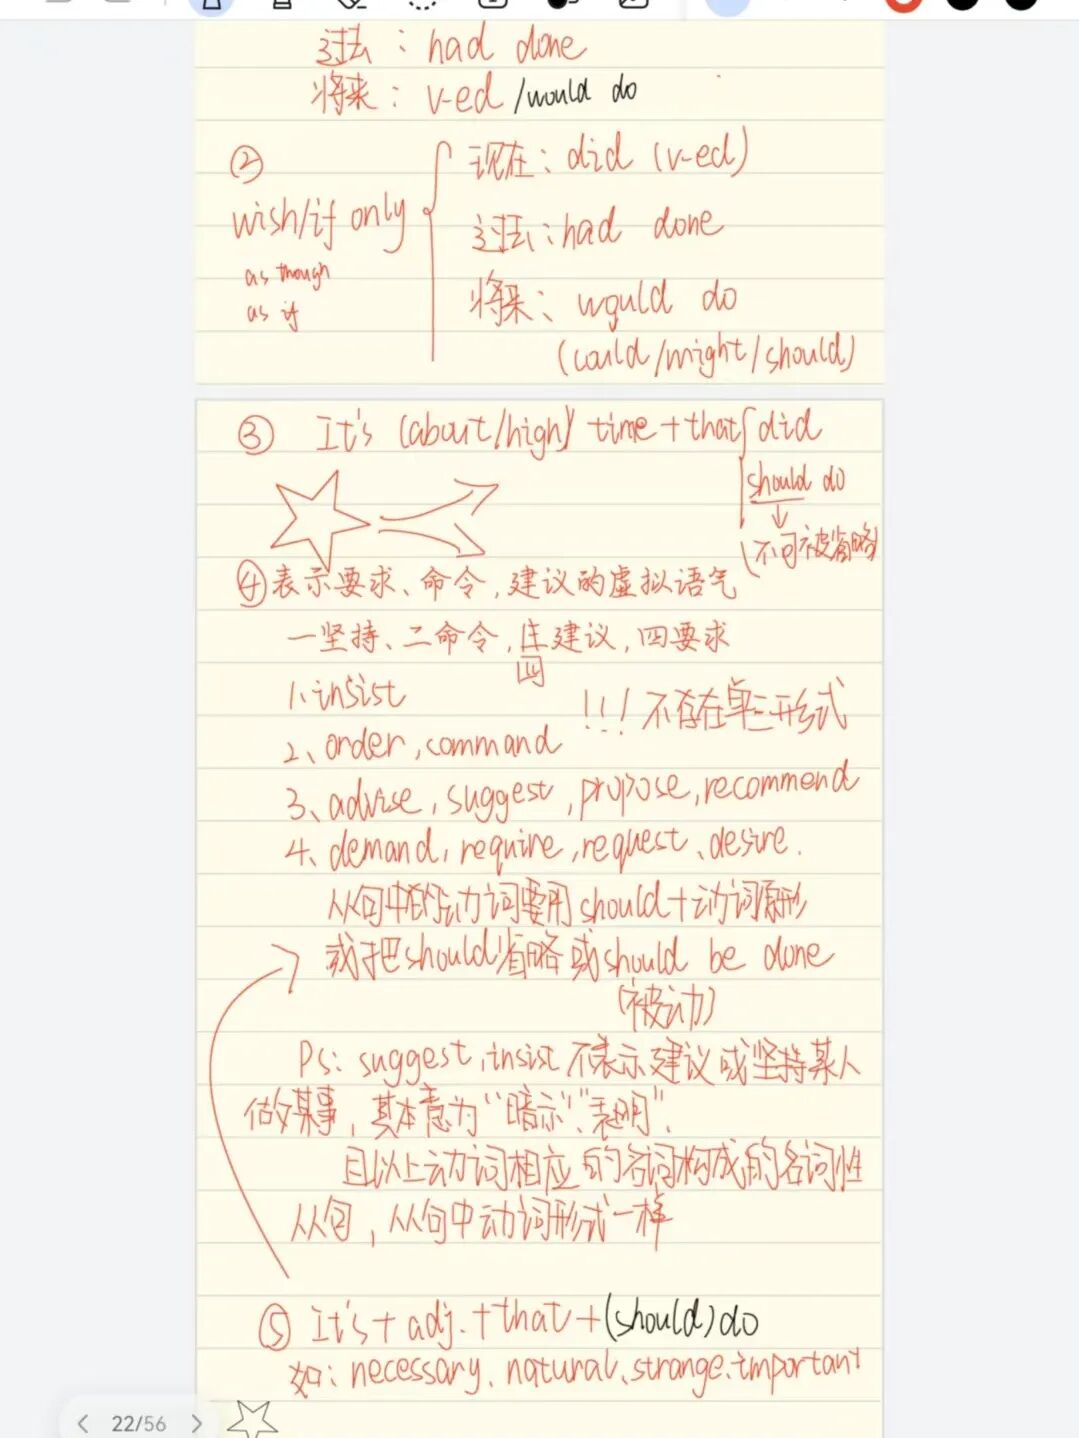 过去：had done
将来：v-ed /would do
②
wish/if only
as though
as if
现在：did (v-ed)
过去：had done
将来：would do
(could/might/should)
③ It's (about/high) time+that did
should do
不可被省略
④表示要求、命令,建议的虚拟语气
一坚持、二命令, 建议, 四要求
四
1.insist
!!! 不存在单三形式
2、order,command
3、advise, suggest, propose, recommend
4、demand, require, request、desire.
从句中的动词要用should+动词原形
或把should省略或should be done
(被动)
Ps: suggest, insist 不表示建议或坚持某人
做某事, 其本意为"暗示"、"表明".
且以上动词相应的名词构成的名词性
从句, 从句中动词形式一样
⑤ It's+ adj.+that+(should)do
如: necessary、natural、strange、important
22/56